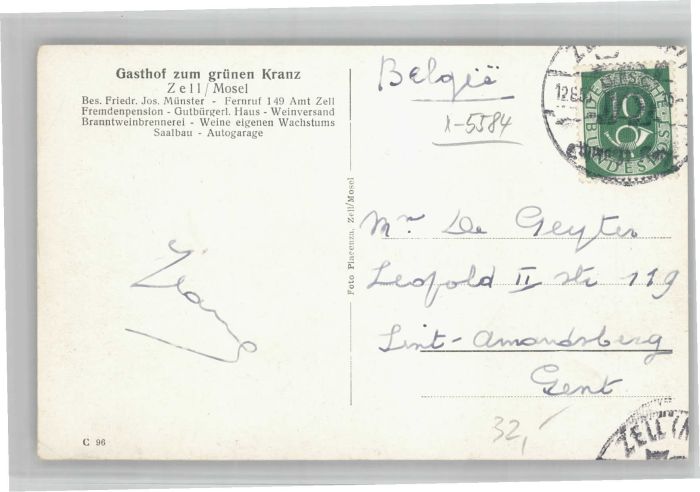 Gasthof zum grünen Kranz
Zell/Mosel
Bes. Friedr. Jos. Münster - Fernruf 149 Amt Zell
Fremdenpension - Gutbürgerl. Haus - Weinversand
Branntweinbrennerei - Weine eigenen Wachstums
Saalbau - Autogarage
België
X-5584
DEUTSCHE
BUNDESPOST
10
Foto Placenza, Zell/Mosel
Mr. De Geyter
Leopold II str 119
Sint-Amandsberg
Gent
32,-
C 96
ZELL (M